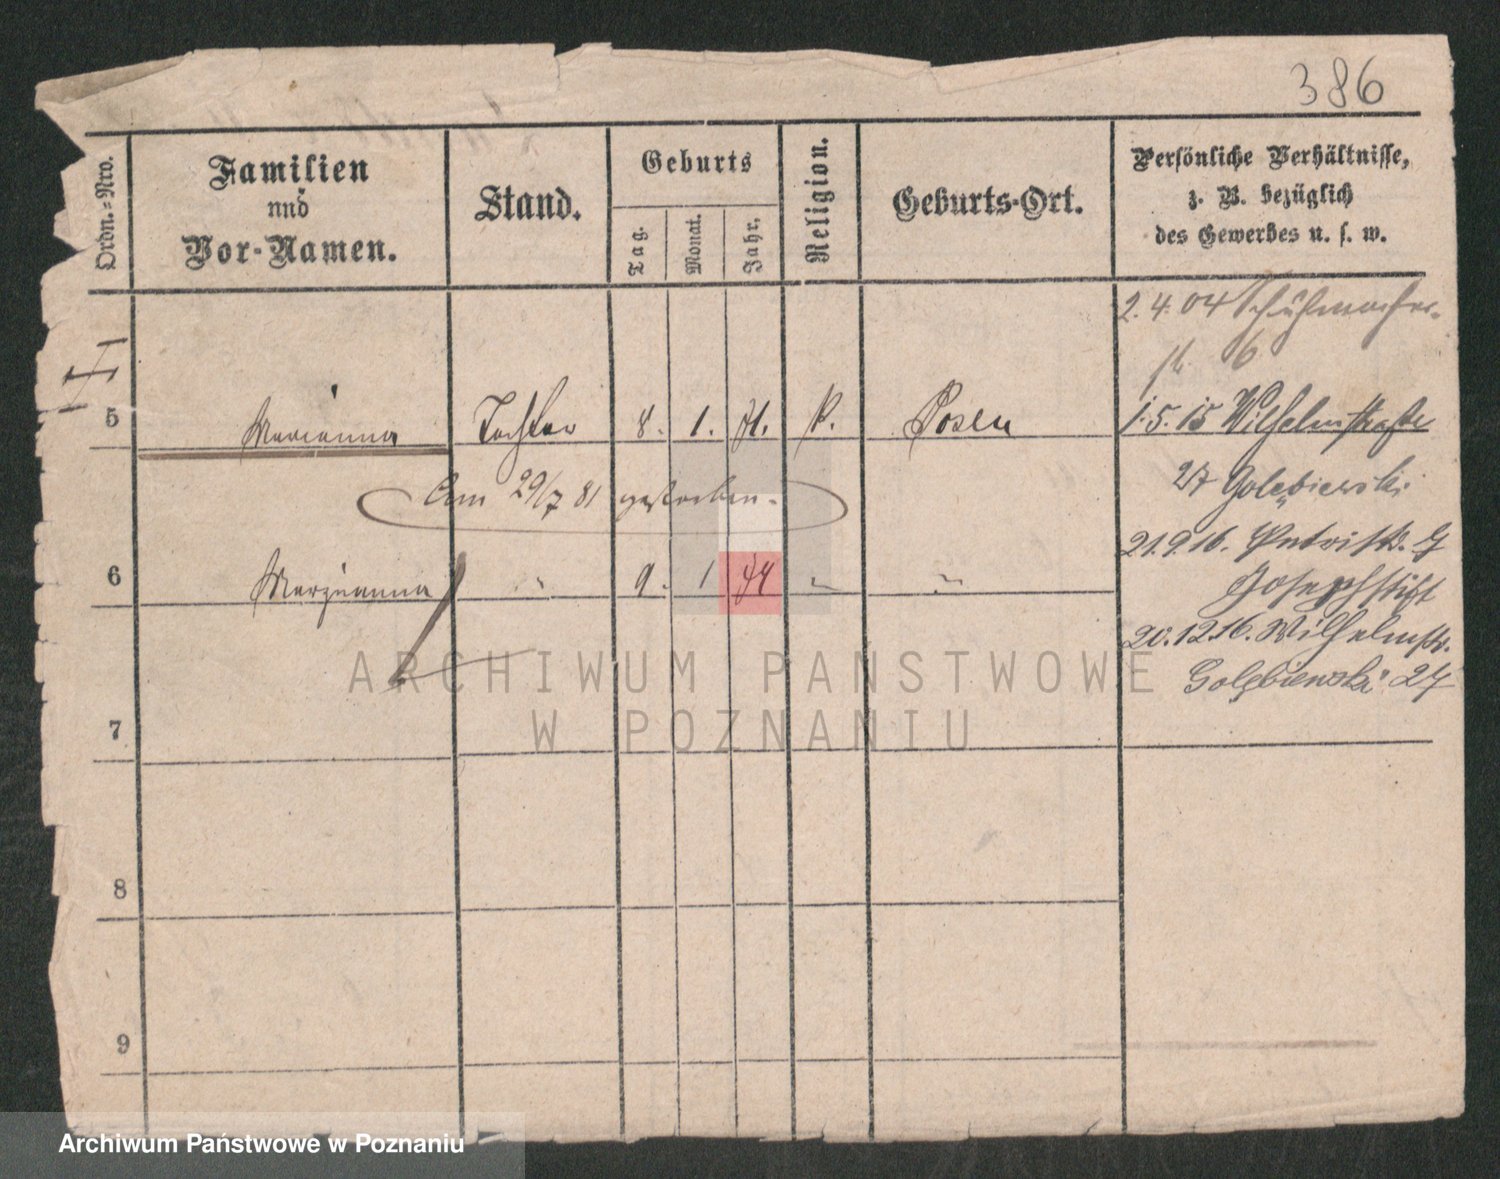 386
Ordn.-Nro.
Familien
und
Vor-Namen.
Stand.
Geburts
Tag.
Monat.
Jahr.
Religion.
Geburts-Ort.
Persönliche Verhältnisse,
z. B. bezüglich
des Gewerbes u. s. w.
2.4.04 Schuhmacher-
str. 6
5 Marianna Tochter 8. 1. 71. k. Posen
1.5.15 Wilhelmstraße
27 Golębiewski
Am 29/7 81 gestorben.
21.9.16.
Josephstift
6 Maryanna " 9. 1 74 " "
20.12.16. Wilhelmstr.
Golębiewski 27
7
8
9
ARCHIWUM PAŃSTWOWE
W POZNANIU
Archiwum Państwowe w Poznaniu